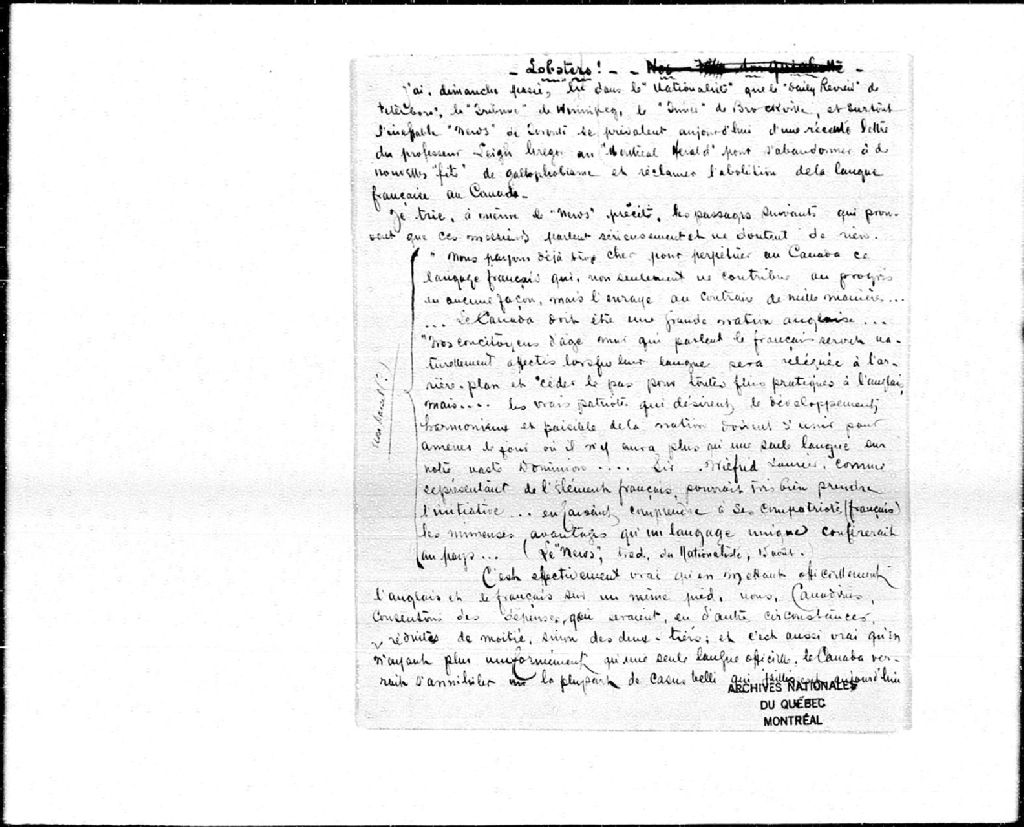 - Lobsters! -
J'ai, dimanche passé, lu dans le "Nationaliste" que le "Daily Review" de
Peterboro', le "Tribune" de Winnipeg, le "Times" de Brockville, et surtout
l'ineffable "News" de Toronto se prévalent aujourd'hui d'une récente lettre
du professeur Leigh Gregor au "Montreal Herald" pour s'abandonner à de
nouvelles "fits" de gallophobisme et réclamer l'abolition de la langue
française au Canada.
Je trie, à même le "News" précité, les passages suivants qui prou-
vent que ces messieurs parlent sérieusement et ne doutent de rien.
" Nous payons déjà trop cher pour perpétuer au Canada ce
langage français qui, non seulement ne contribue au progrès
en aucune façon, mais l'enraye au contraire de mille manières...
... Le Canada doit être une grande nation anglaise ...
"Nos concitoyens d'âge mur qui parlent le français seront na-
turellement affectés lorsque leur langue sera reléguée à l'ar-
rière-plan et céder le pas pour toutes fins pratiques à l'anglais,
mais.... les vrais patriotes qui désirent le développement
harmonieux et paisible de la nation doivent s'unir pour
amener le jour où il n'y aura plus qu'une seule langue sur
notre vaste Dominion .... Sir Wilfrid Laurier, comme
représentant de l'élément français, pourrait très bien prendre
l'initiative ... en faisant comprendre à ses compatriotes (français)
les immenses avantages qu'un langage unique conférerait
au pays ... (Le "News", trad. du Nationaliste, 13 août.)
C'est effectivement vrai qu'en mettant officiellement
l'anglais et le français sur un même pied, nous, Canadiens,
consentons des dépenses, qui seraient, en d'autres circonstances,
réduites de moitié, sinon des deux-tiers; et c'est aussi vrai qu'en
n'ayant plus uniformément qu'une seule langue officielle, le Canada ver-
rait s'annihiler la plupart de casus belli qui aujourd'hui
ARCHIVES NATIONALES
DU QUÉBEC
MONTRÉAL